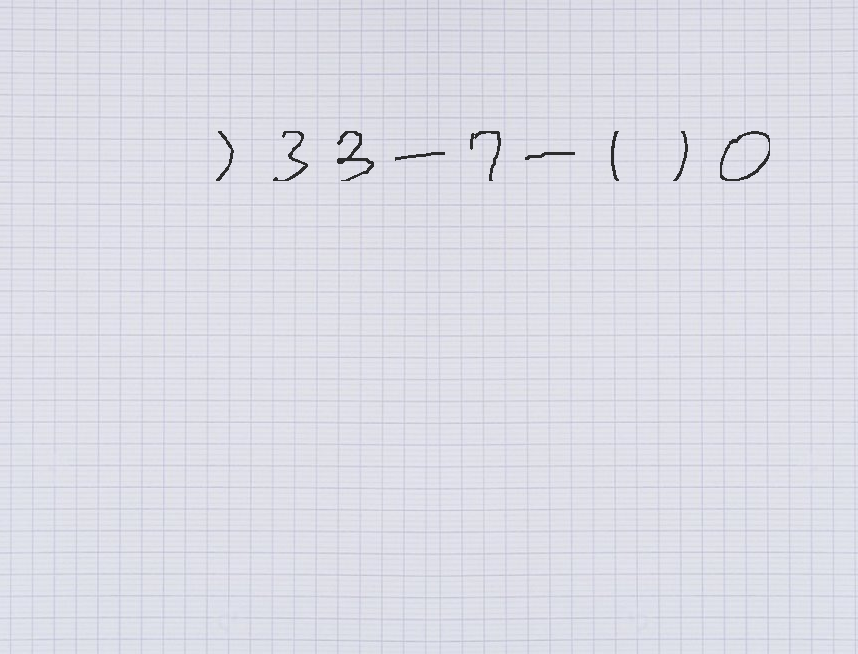 ) 3 3 - 7 - ( ) 0